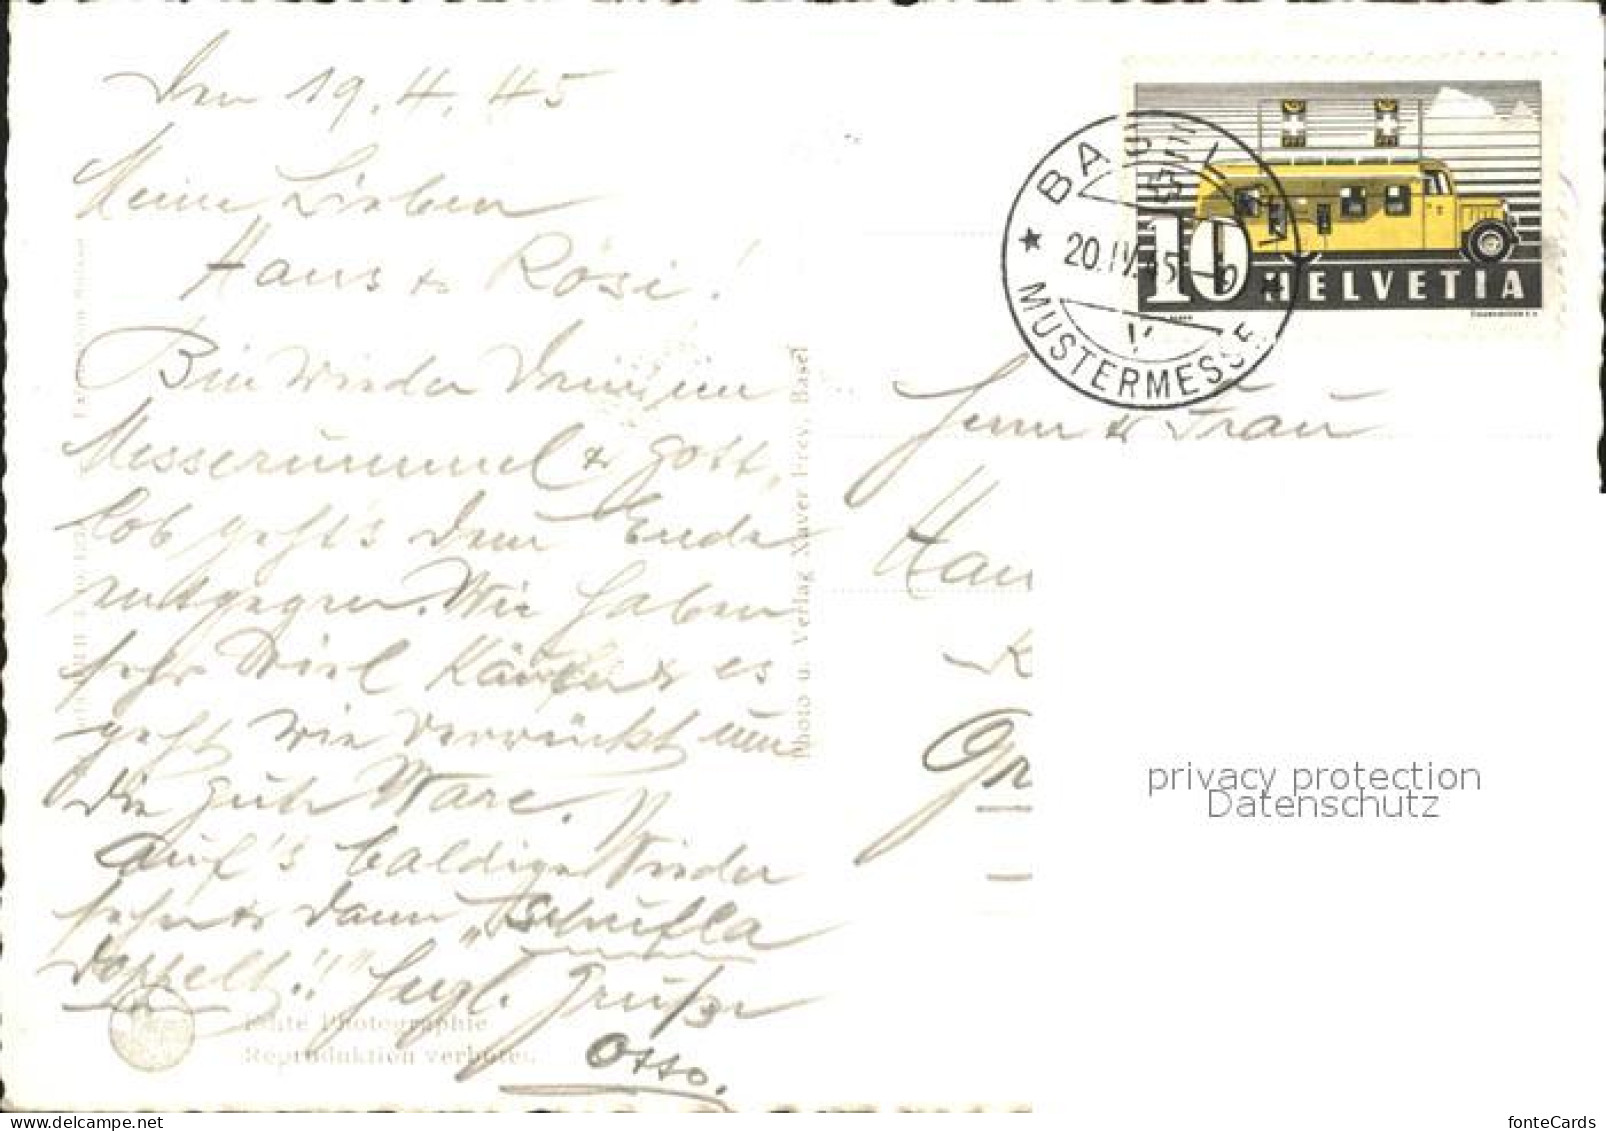 Den 19. 4. 45
Meine Lieben
Hans & Rösi!
Bin wieder drin im
Messerummel & gott,
lob geht's dem Ende
entgegen. Wir haben
sehr viel Käufer & es
geht wie verrückt um
die gute Ware.
Auf's baldige Wieder
sehn & dann „Schufla
doppelt!!" Hrzl. Grüße
Otto.
Echte Photographie
Reproduktion verboten
Photo u. Verlag Xaver Frey, Basel
BASEL
20.IV.45
MUSTERMESSE
10
HELVETIA
Herrn & Frau
Han
K
Gr
privacy protection
Datenschutz
fonteCards